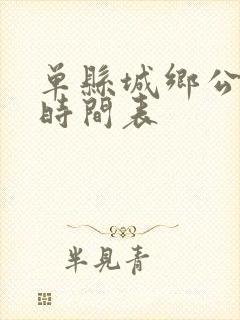 單縣城鄉公
時間表
半見青